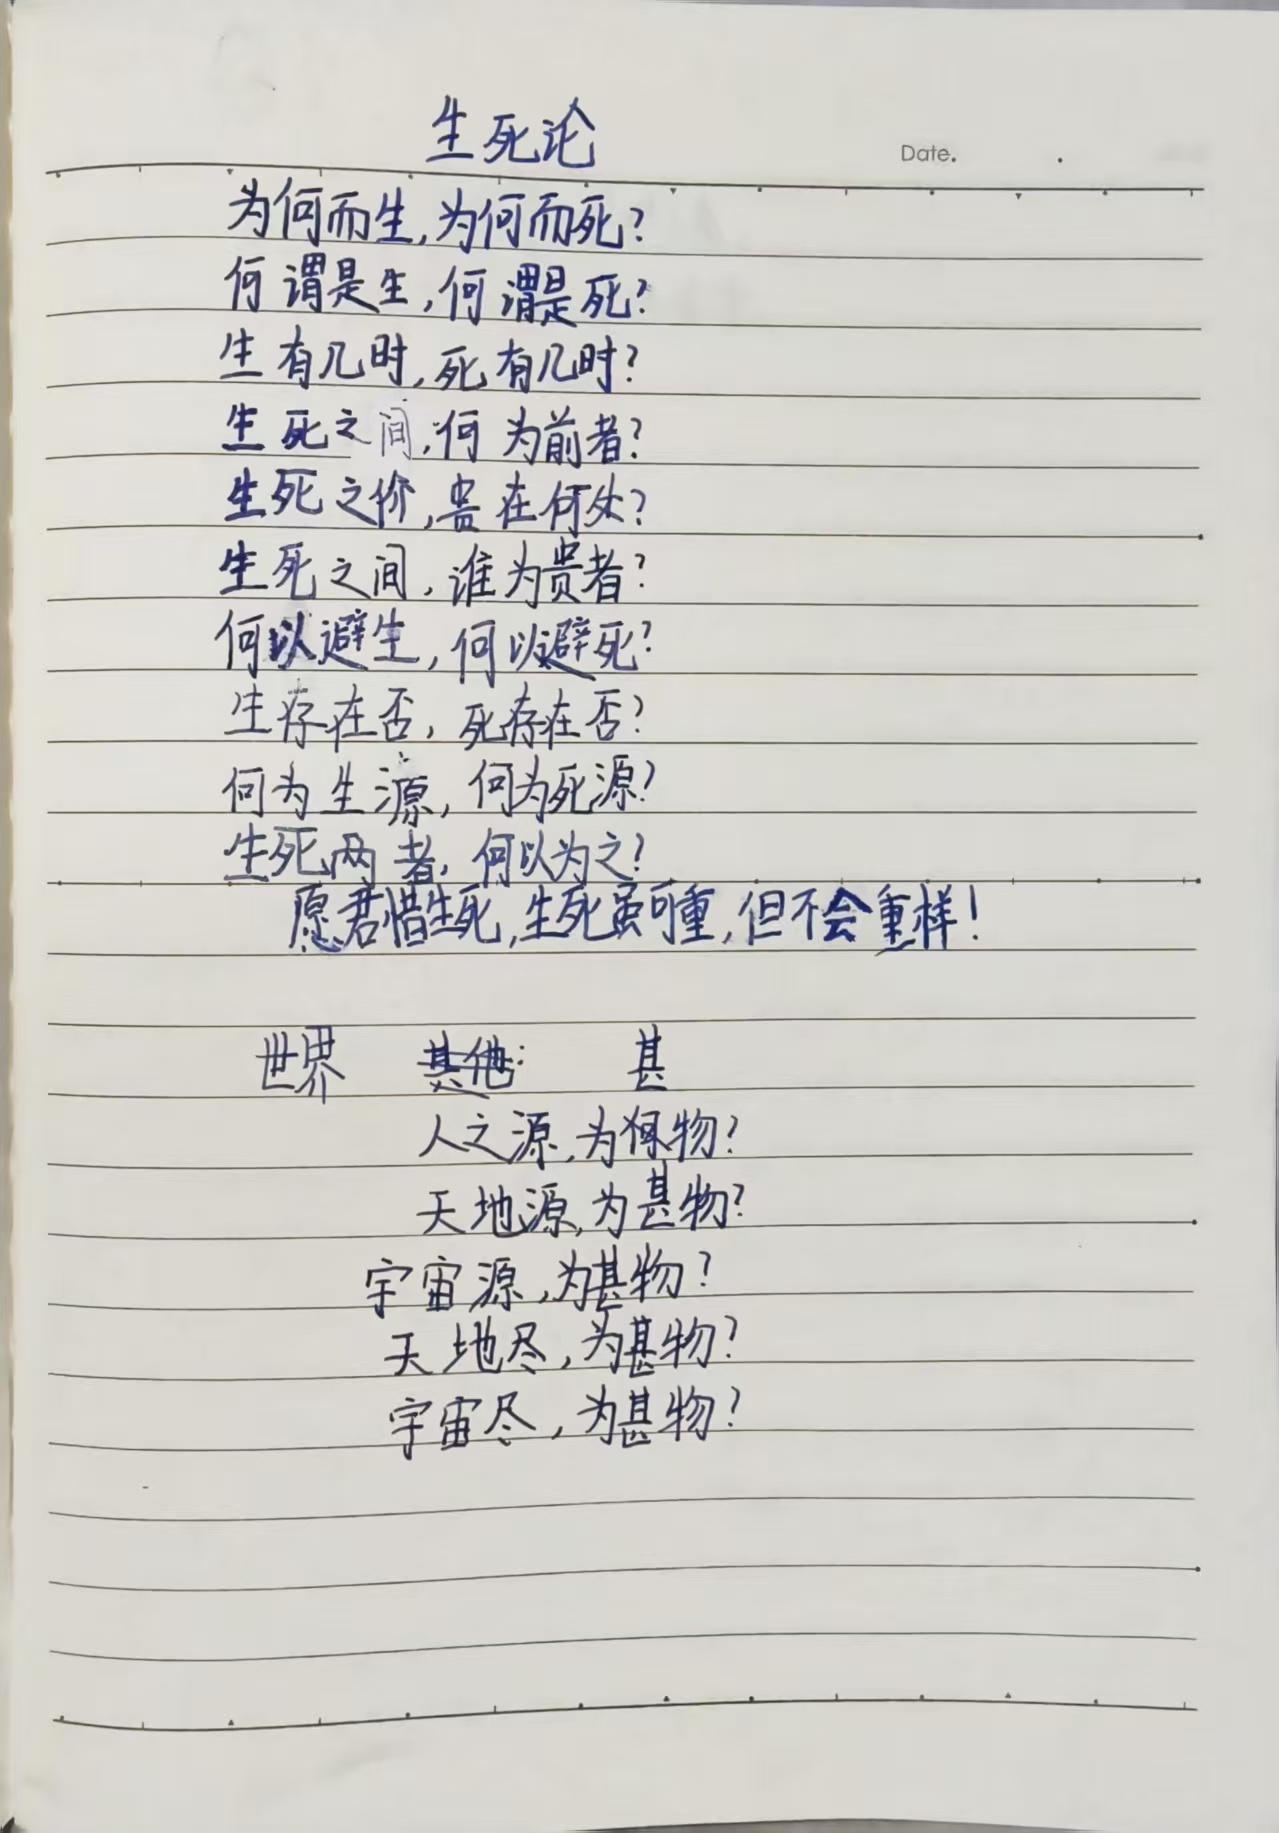 生死论
Date.
为何而生,为何而死?
何谓是生,何谓是死?
生有几时,死有几时?
生死之间,何为前者?
生死之价,贵在何处?
生死之间,谁为贵者?
何以避生,何以避死?
生存在否,死存在否?
何为生源,何为死源?
生死两者,何以为之?
愿君惜生死,生死虽可重,但不会重样!
世界 其他: 甚
人之源,为何物?
天地源,为甚物?
宇宙源,为甚物?
天地尽,为甚物?
宇宙尽,为甚物?